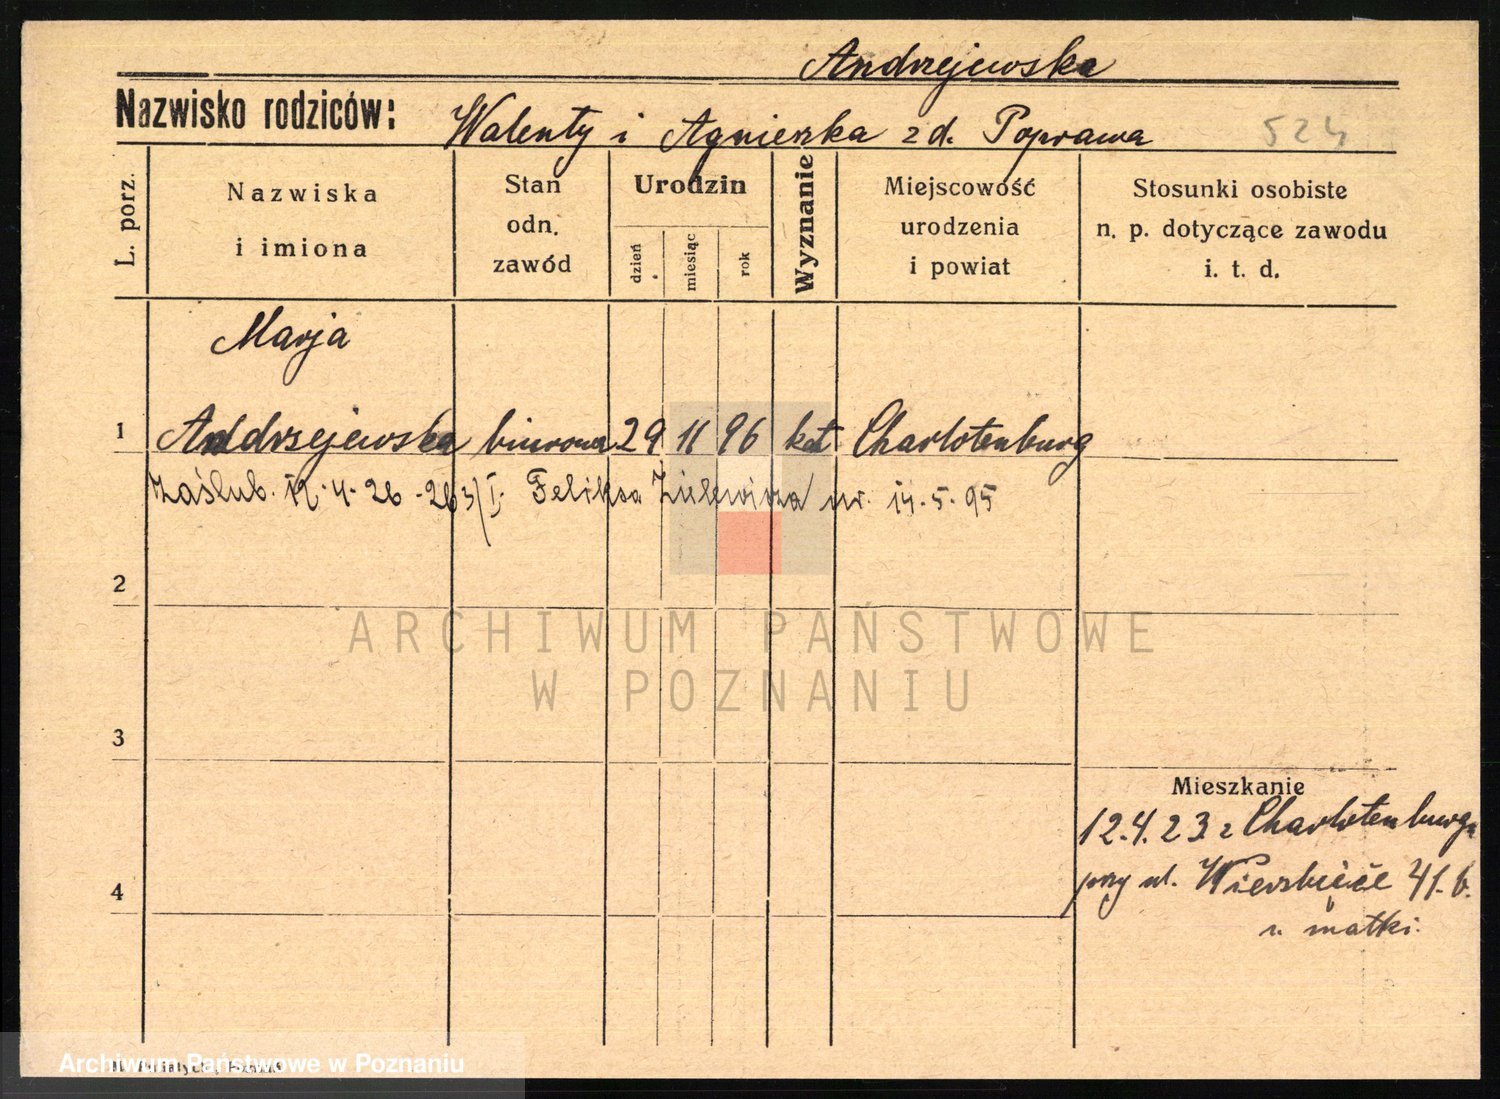 Andrzejewska
Nazwisko rodziców: Walenty i Agnieszka z d. Poprawa 524
L. porz.
Nazwiska
i imiona
Stan
odn.
zawód
Urodzin
dzień
miesiąc
rok
Wyznanie
Miejscowość
urodzenia
i powiat
Stosunki osobiste
n. p. dotyczące zawodu
i. t. d.
Marja
1 Anddrzejewska biurowa 29 11 96 kat Charlotenburg
Zaślub. 12.4.26 - 263/I. Feliksa Zielewicza ur. 14.5.95
2
3
4
Mieszkanie
12.4.23 z Charlotenburga
przy ul. Wierzbięcie 41.b.
u matki.
ARCHIWUM PAŃSTWOWE
W POZNANIU
Archiwum Państwowe w Poznaniu